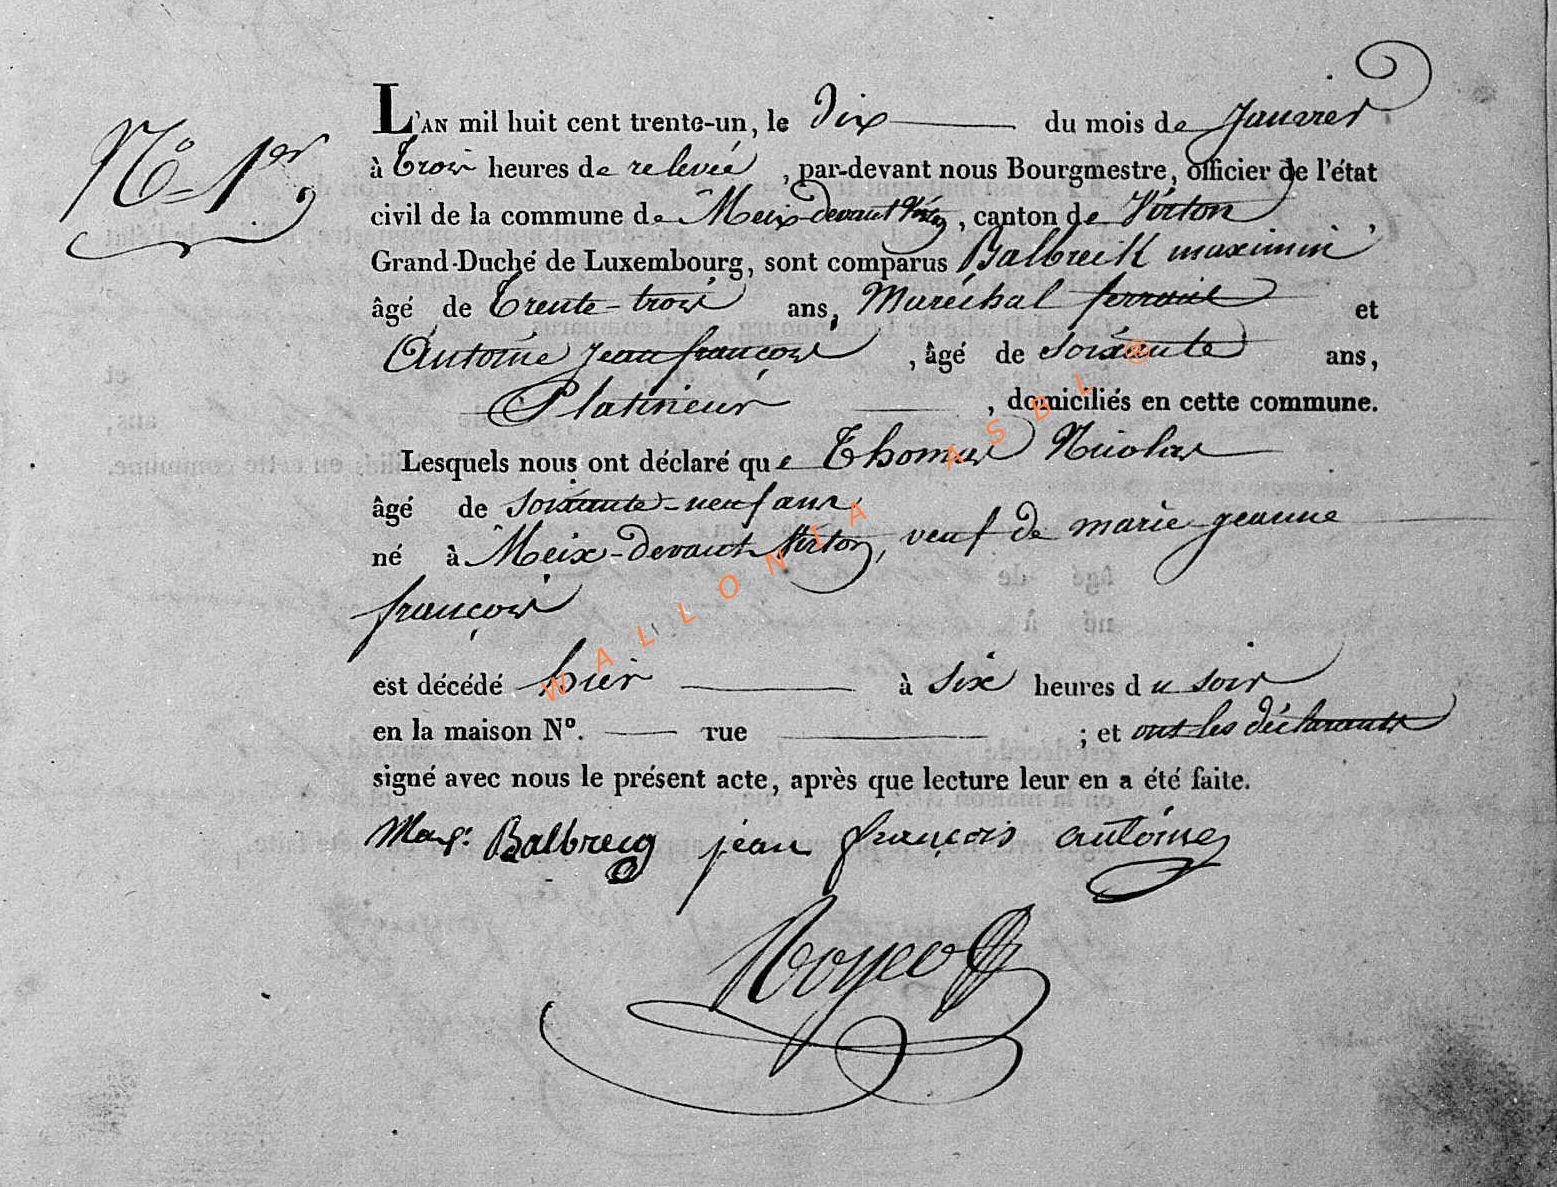 N° 1er
L'AN mil huit cent trente-un, le Dix du mois de Janvier
à Trois heures de relevée, par-devant nous Bourgmestre, officier de l'état
civil de la commune de Meix-devant Virton, canton de Virton
Grand-Duché de Luxembourg, sont comparus Balbreik maximin
âgé de Trente-trois ans, Maréchal ferrant et
Antoine Jean françois, âgé de soixante ans,
Platineur, domiciliés en cette commune.
Lesquels nous ont déclaré que Thomas Nicolas
âgé de soixante-neuf ans,
né à Meix-devant Virton, veuf de marie jeanne
françois
est décédé hier à six heures du soir
en la maison N°. rue ; et ont les déclarants
signé avec nous le présent acte, après que lecture leur en a été faite.
Max: Balbrecq jean françois antoine
WALLONIA ASBL @